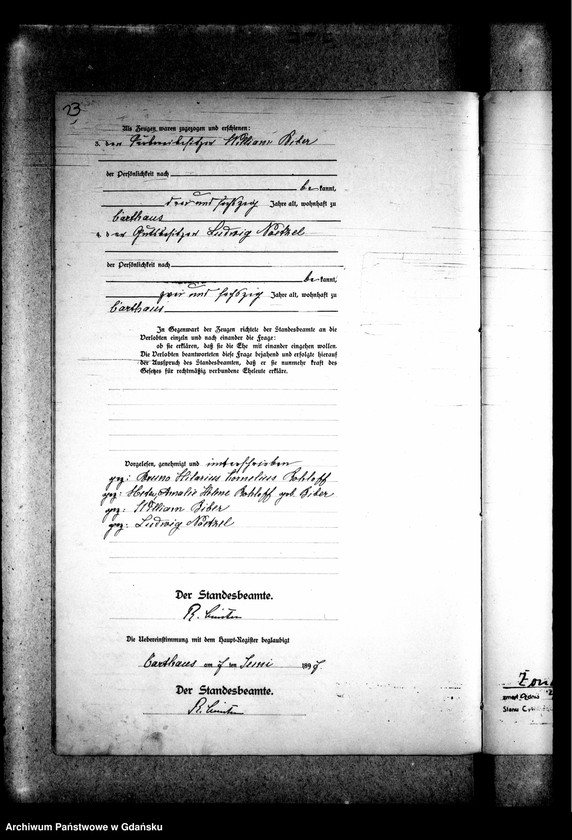 23
Als Zeugen waren zugezogen und erschienen:
3. den William Biber
der Persönlichkeit nach
be kannt,
drei und sechszig Jahre alt, wohnhaft zu
Carthaus
4. der Gutsbesitzer Ludwig
der Persönlichkeit nach
be kannt,
zwei und sechszig Jahre alt, wohnhaft zu
Carthaus
In Gegenwart der Zeugen richtete der Standesbeamte an die
Verlobten einzeln und nach einander die Frage:
ob sie erklären, daß sie die Ehe mit einander eingehen wollen.
Die Verlobten beantworteten diese Frage bejahend und erfolgte hierauf
der Ausspruch des Standesbeamten, daß er sie nunmehr kraft des
Gesetzes für rechtmäßig verbundene Eheleute erkläre.
Vorgelesen, genehmigt und unterschrieben
gez: Bruno Hilarius Cornelius Rohloff
gez: Amalie Helene Rohloff geb. Biber
gez: William Biber
gez: Ludwig
Der Standesbeamte.
R.
Die Uebereinstimmung mit dem Haupt-Register beglaubigt
Carthaus am 7 ten Juni 1897
Der Standesbeamte.
R.
Stanu
Archiwum Państwowe w Gdańsku